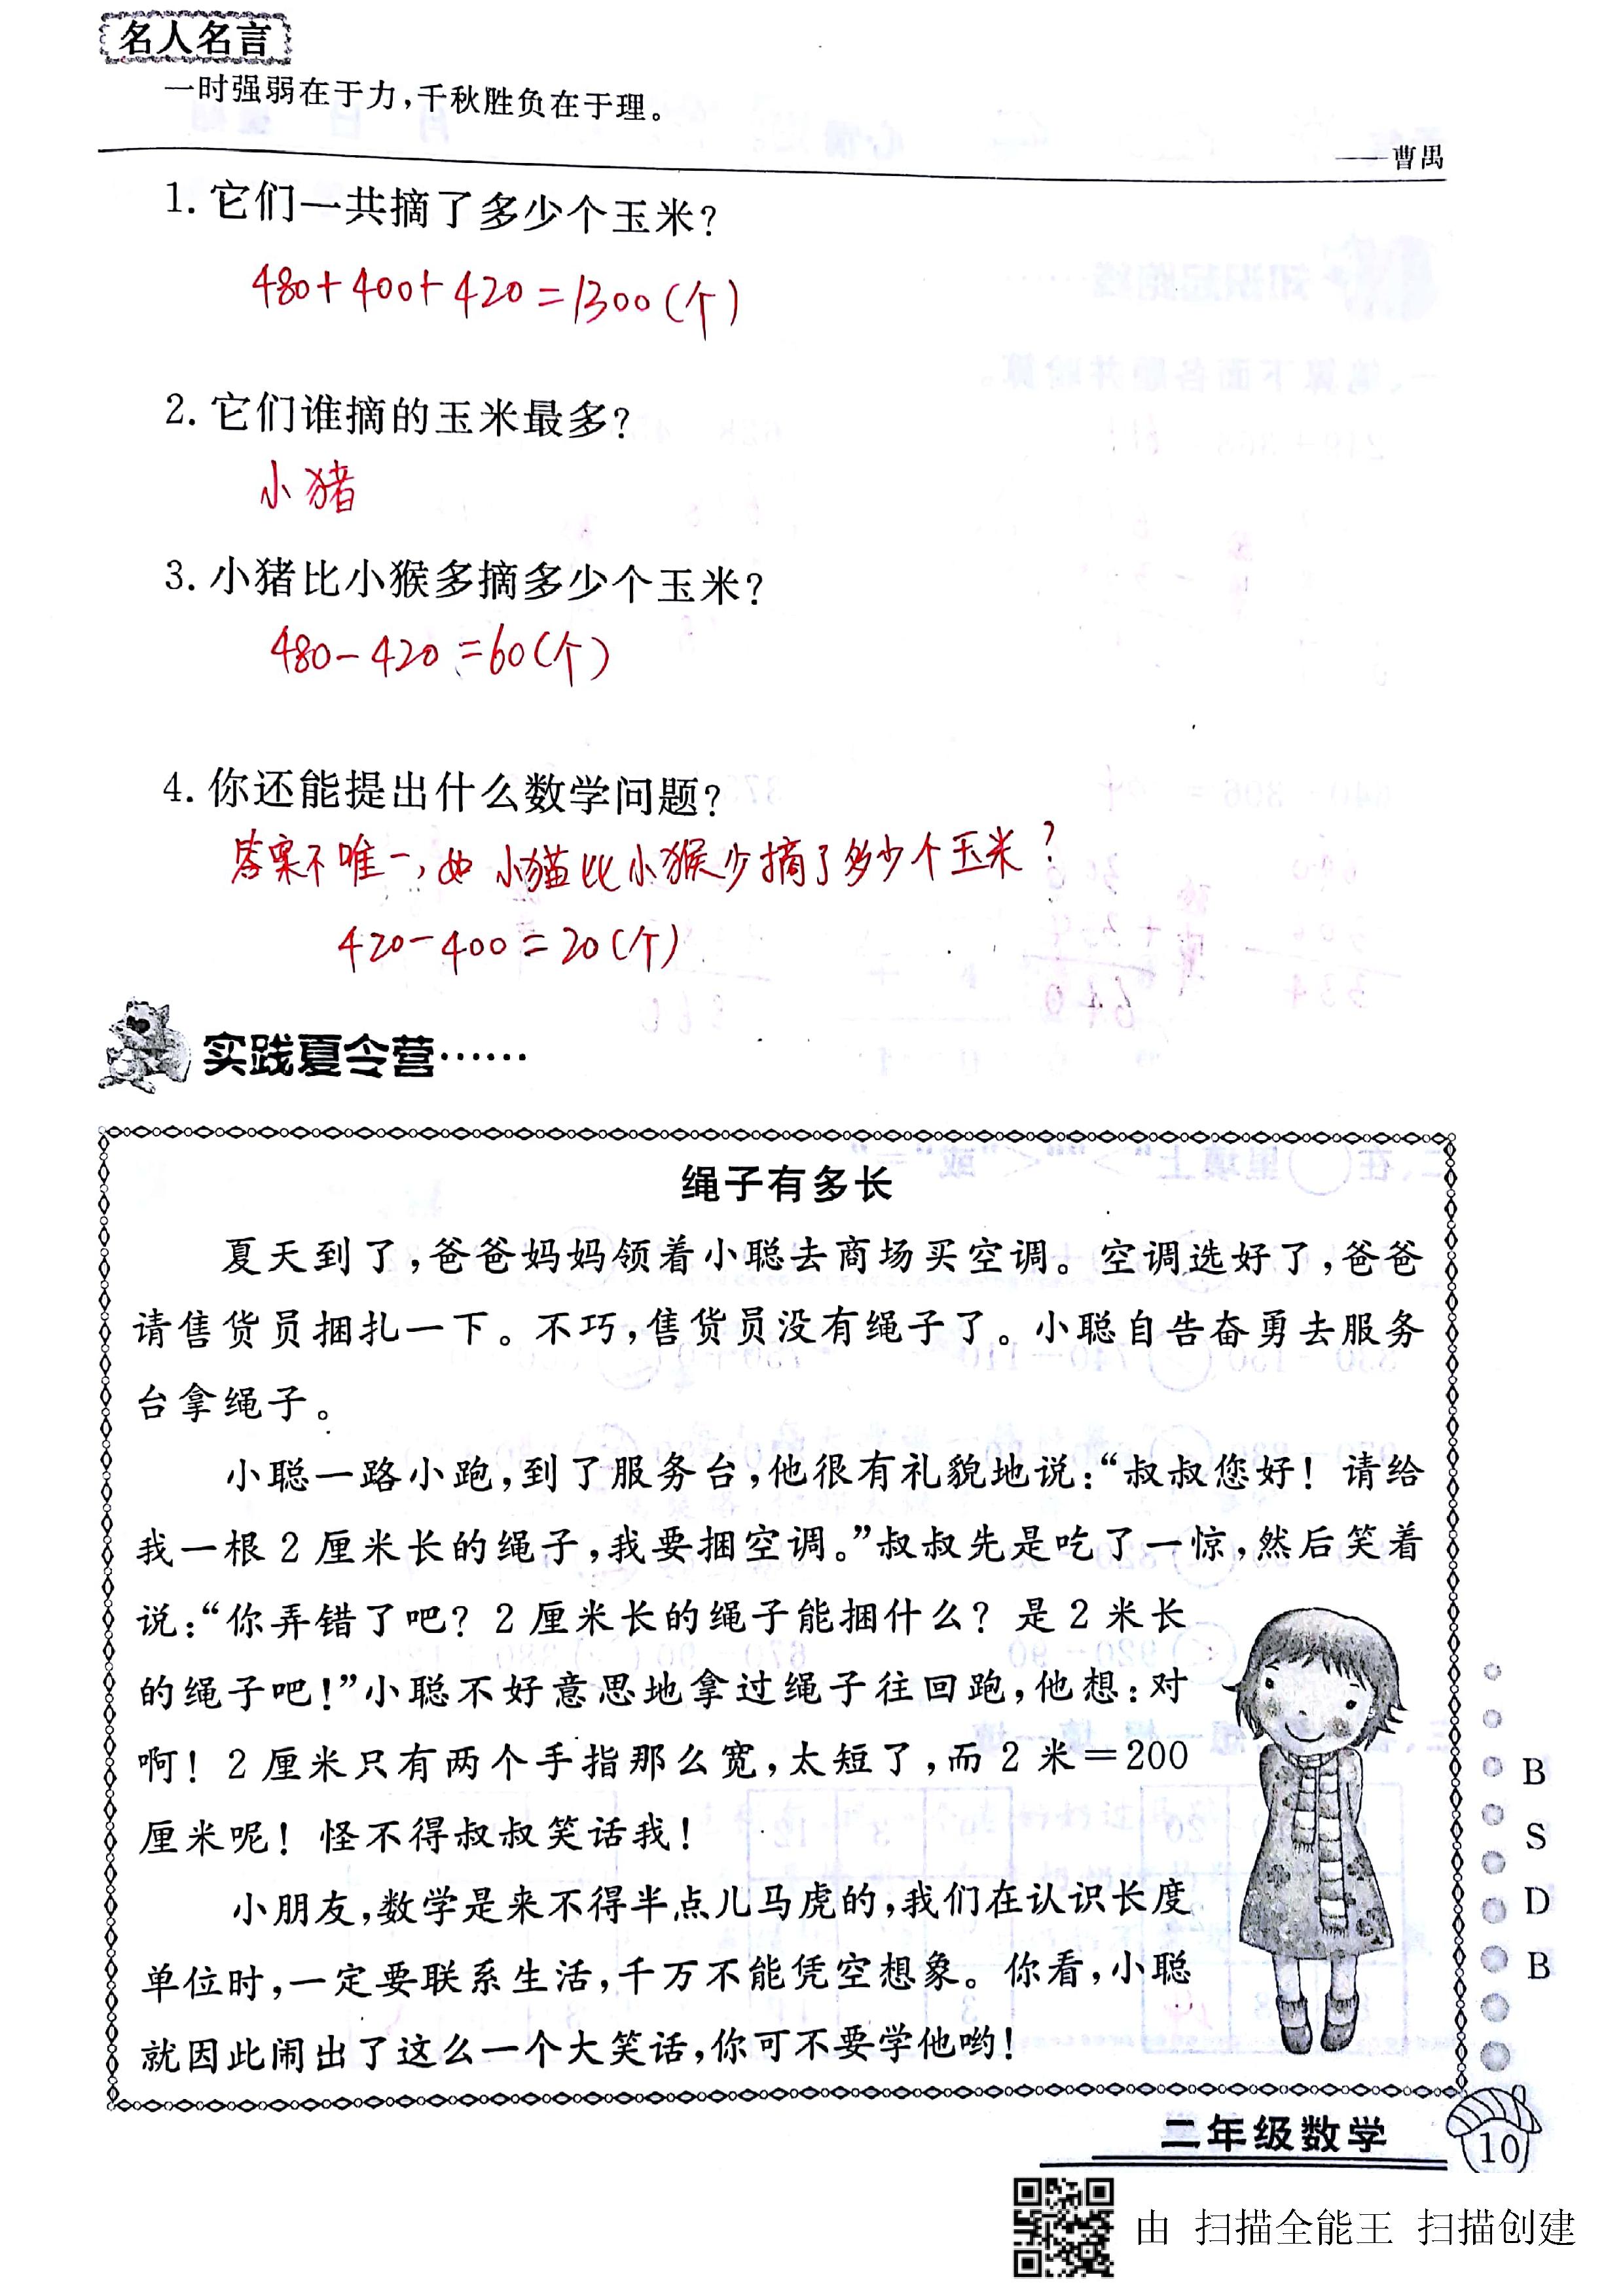 名人名言
一时强弱在于力,千秋胜负在于理。
——曹禺
1. 它们一共摘了多少个玉米?
480+400+420=1300(个)
2. 它们谁摘的玉米最多?
小猪
3. 小猪比小猴多摘多少个玉米?
480-420=60(个)
4. 你还能提出什么数学问题?
答案不唯一,如 小猫比小猴少摘了多少个玉米?
420-400=20(个)
实践夏令营……
绳子有多长
夏天到了,爸爸妈妈领着小聪去商场买空调。空调选好了,爸爸
请售货员捆扎一下。不巧,售货员没有绳子了。小聪自告奋勇去服务
台拿绳子。
小聪一路小跑,到了服务台,他很有礼貌地说:“叔叔您好!请给
我一根2厘米长的绳子,我要捆空调。”叔叔先是吃了一惊,然后笑着
说:“你弄错了吧?2厘米长的绳子能捆什么?是2米长
的绳子吧!”小聪不好意思地拿过绳子往回跑,他想:对
啊!2厘米只有两个手指那么宽,太短了,而2米=200
厘米呢!怪不得叔叔笑话我!
小朋友,数学是来不得半点儿马虎的,我们在认识长度
单位时,一定要联系生活,千万不能凭空想象。你看,小聪
就因此闹出了这么一个大笑话,你可不要学他哟!
B
S
D
B
二年级数学
10
由 扫描全能王 扫描创建